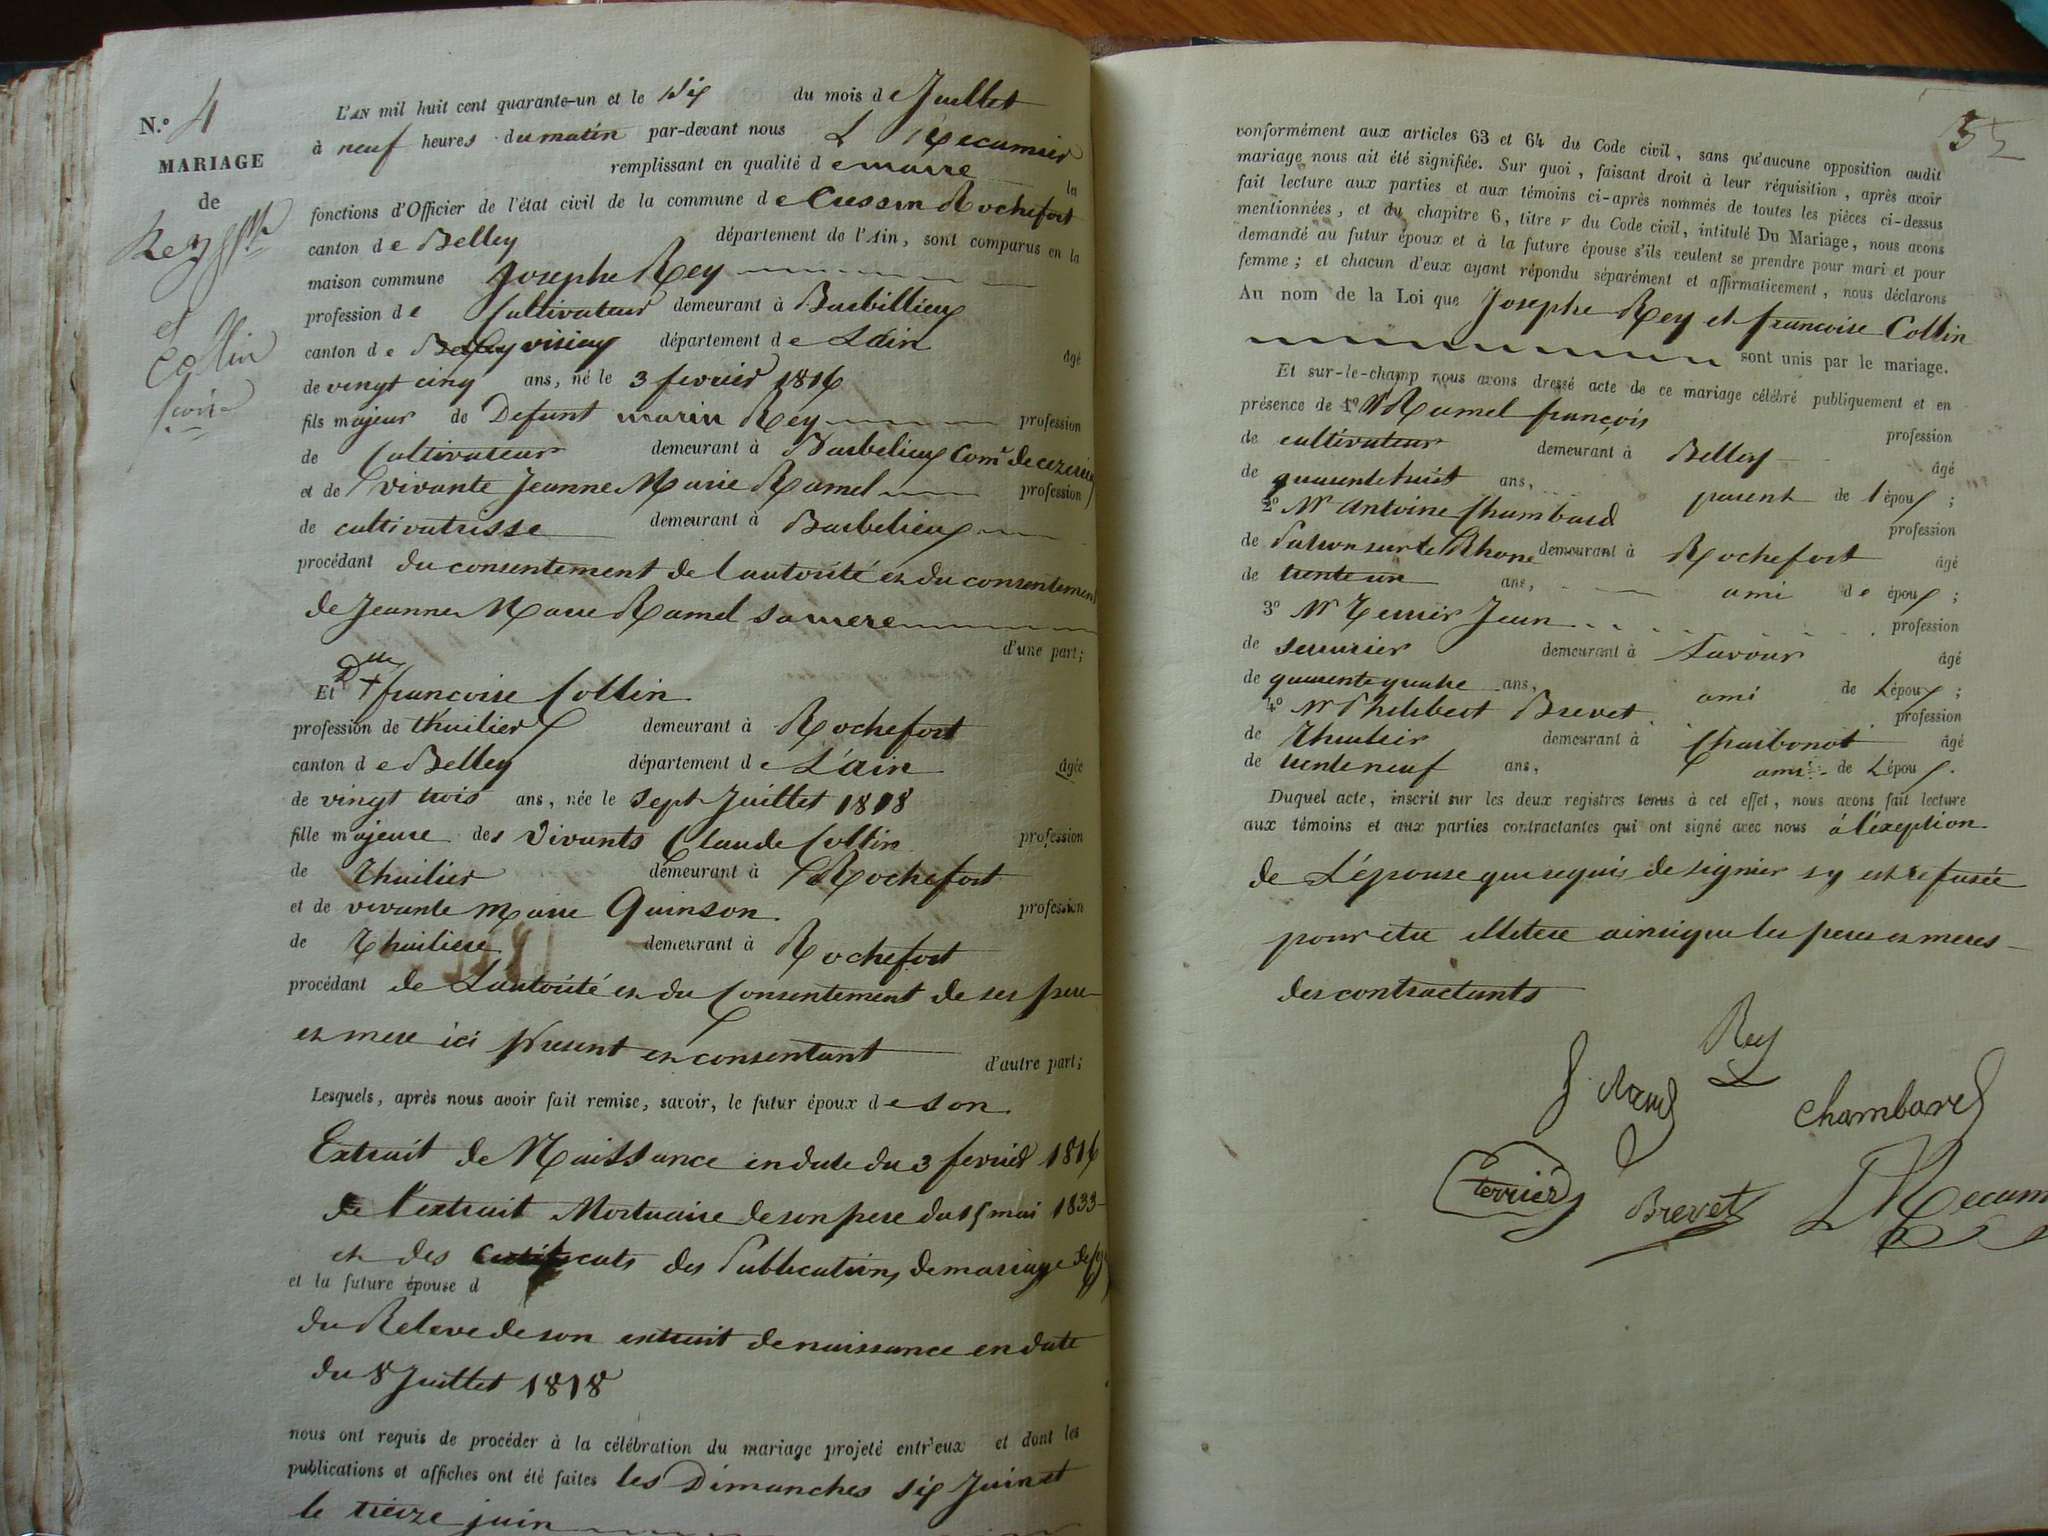 N.º 4
MARIAGE
de
Rey Jph
et
Collin
L'AN mil huit cent quarante-un et le dix du mois de Juillet
à neuf heures du matin par-devant nous L Recamier
remplissant en qualité de maire les
fonctions d'Officier de l'état civil de la commune de Cressin Rochefort
canton de Belley département de l'Ain, sont comparus en la
maison commune Josephe Rey
profession de Cultivateur demeurant à Barbillieux
canton de virieux département de Lain âgé
de vingt cinq ans, né le 3 fevrier 1816
fils majeur de Defunt marin Rey profession
de Cultivateur demeurant à Barbelieux Comne de cezerieu
et de vivante Jeanne Marie Ramel profession
de cultivatrisse demeurant à Barbelieux
procédant du consentement de l'autorité et du consentement
de Jeanne Marie Ramel sa mere
d'une part;
Et Dlle francoise Collin
profession de thuilier demeurant à Rochefort
canton de Belley département de L'ain âgée
de vingt trois ans, née le sept Juillet 1818
fille majeure des Vivants Claude Collin profession
de Thuilier demeurant à Rochefort
et de vivante Marie Quinson profession
de Thuiliere demeurant à Rochefort
procédant de L'autorité et du Consentement de ses pere
et mere ici present et consentant d'autre part;
Lesquels, après nous avoir fait remise, savoir, le futur époux de son
Extrait de Naissance en date du 3 fevrier 1816
de l'extrait Mortuaire de son pere du 15 mai 1833
et des certificats des Publications de mariage
et la future épouse d
du Releve de son extrait de naissance en date
du 8 Juillet 1818
nous ont requis de procéder à la célébration du mariage projeté entr'eux et dont les
publications et affiches ont été faites les Dimanches six Juin et
le treize juin
35
conformément aux articles 63 et 64 du Code civil, sans qu'aucune opposition audit
mariage nous ait été signifiée. Sur quoi, faisant droit à leur réquisition, après avoir
fait lecture aux parties et aux témoins ci-après nommés de toutes les pièces ci-dessus
mentionnées, et du chapitre 6, titre v du Code civil, intitulé Du Mariage, nous avons
demandé au futur époux et à la future épouse s'ils veulent se prendre pour mari et pour
femme; et chacun d'eux ayant répondu séparément et affirmativement, nous déclarons
Au nom de la Loi que Josephe Rey et francoise Collin
sont unis par le mariage.
Et sur-le-champ nous avons dressé acte de ce mariage célébré publiquement et en
présence de 1º Mr Ramel françois
de cultivateur demeurant à Belley profession
de quarente huit ans, parent de l'époux; âgé
2º Mr Antoine Chambard profession
de Patron sur le Rhone demeurant à Rochefort âgé
de trente un ans, ami de époux;
3º Mr Terrier Jean profession
de serrurier demeurant à Lavour âgé
de quarente quatre ans, ami de L'époux;
4º Mr Philibert Brevet profession
de Thuilier demeurant à Charbonot âgé
de trente neuf ans, ami de L'époux.
Duquel acte, inscrit sur les deux registres tenus à cet effet, nous avons fait lecture
aux témoins et aux parties contractantes qui ont signé avec nous à l'exeption
de L'épouse qui requis de signier sy est refusée
pour etre illetere ainsi que les peres et meres
des contractants
Rey
Ramel
Chambard
Terrier
Brevet
L Recam